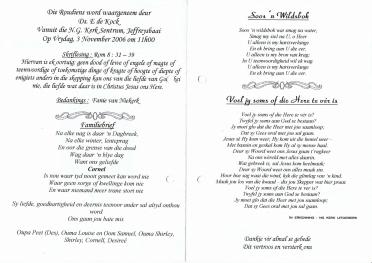 Die Rondiens word waargeneem deur
Ds. E de Kock
Vanuit die N.G. Kerk Sentrum, Jeffreysbaai
Op Vrydag, 3 November 2006 om 11h00
Skriflesing : Rom 8 : 31 – 39
Hiervan is ek oortuig: geen dood of lewe of engele of magte of
teenwoordige of toekomstige dinge of kragte of hoogte of diepte of
enigiets anders in die skepping kan ons van die liefde van God skei
nie, die liefde wat daar is in Christus Jesus ons Here.
Bedankings : Fanie van Niekerk
Familiebrief
Na elke nag is daar 'n Dagbreek.
Na elke winter, lenteprag
En oor die grense van die dood
Wag daar 'n blye dag
Want ons geliefde
Cornel
Is nou waar tyd nooit gemeet kan word nie
Waar geen sorge of kwellinge kom nie
En waar niemand meer trane stort nie
Sy liefde, goedhartigheid en deernis teenoor ander sal altyd onthou
word
Ons gaan jou baie mis
Oupa Peet (Des), Ouma Louise en Oom Samuel, Ouma Shirley,
Shirley, Cornell, Desireé
Soos 'n Wildsbok
Soos 'n wildsbok wat smag na water,
Smag my siel na U, o Heer
U alleen is my hartsverlange
En ek bring aan U die eer.
U alleen is my bron van krag;
In U teenwoordigheid wil ek wag
U alleen is my hartsverlange
En ek bring aan U die eer.
Voel jy soms of die Here te vêr is
Voel jy soms of die Here te vêr is?
Twyfel jy soms aan God se bestaan?
Jy moet glo dat die Heer met jou saamloop;
Dat sy Gees oral met jou sal gaan.
Jesus sê Hy kom weer; Hy kom uit die hemel neer –
Met basuin en geskal kom Hy af sy mense haal.
Deur sy Woord weet ons Jesus gaan t'rugkeer
Na ons wêreld met alles daarin.
Wat gebreek is, sal Jesus kom heelmaak;
Deur sy Woord weet ons alles maak sin.
Hoor hoe sag waai die wind, kyk die glimlag van 'n kind.
Voel jy soms of die Here te vêr is?
Twyfel jy soms aan God se bestaan?
Jy moet glo dat die Heer met jou saamloop;
Dat sy Gees oral met jou sal gaan.
Dankie vir almal se gebede
Dit vertroos en versterk ons